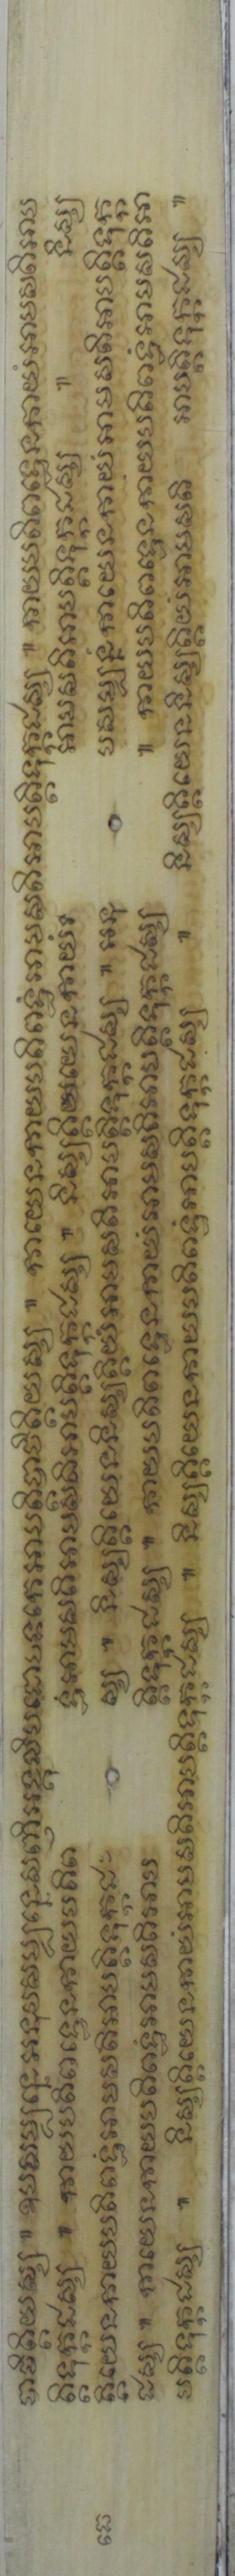 បាចិត្តិយស្ស ៕ ឧបសម្បន្នេអនុបសម្បន្នសញ្ញីអង្គុលិបតោទនកេអាបត្តិបាចិត្តិយស្ស ៕ កាយេនកាយបតិពទ្ធំអាមសតិអាបត្តិទុក្កដស្ស ៕ កាយបតិពទ្ធេនកាយំអាមសតិអាប
ត្តិទុក្កដស្ស ៕ កាយបតិពទ្ធេនកាយបតិព ទ្ធំអាមសតិអាមសតិអាបត្តិទុក្កដស្ស ៕ និស្សគ្គិយយេនកាយំ អាមសតិអាបត្តិទុក្កដស្ស ៕ និស្ស
ធេ គ្គិយេនកាយបតិពទ្ធំអាមសតិអាបត្តិទុក្កដ ស្ស ៕ និស្សគ្គិយេននិស្សគ្គិយំអាមសតិអាបត្តិទុក្កដស្ស ៕ អនុ បសម្បន្នំកាយេនកាយំអាមសតិអាបត្តិទុក្ក
ដស្ស ៕ កាយេនកាយបតិពទ្ធំអាមសតិអាប ត្តិទុក្កដស្ស ៕ កាយបតិពទ្ធេនកាយំអាមសតិអាបត្តិទុក្កដស្ស ៕ កាយបតិពទ្ធេនកាយបតិពទ្ធំអាមសតិអា
បត្តិទុក្កដស្ស ៕ និស្សគ្គិយេនកាយំអាមសតិអាបត្តិទុក្កដស្ស ៕ និស្សគ្គិយេនកាយបតិពទ្ធំអាបត្តិទុក្កដស្ស ៕ និស្សគ្គិយេននិស្សគ្គិយំអាមសតិ អាបត្តិទុក្កដស្ស ៕